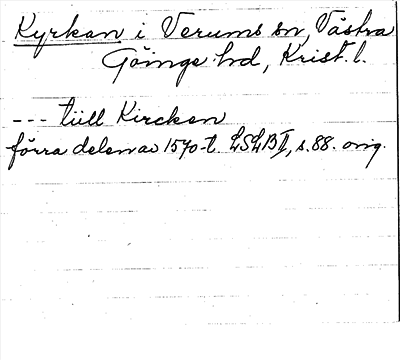 Kyrkan i Verums sn, Västra
Göinge hd, Krist. l.
--- tiill Kircken
förra delen av 1570-t. LSLB II, s. 88. orig.